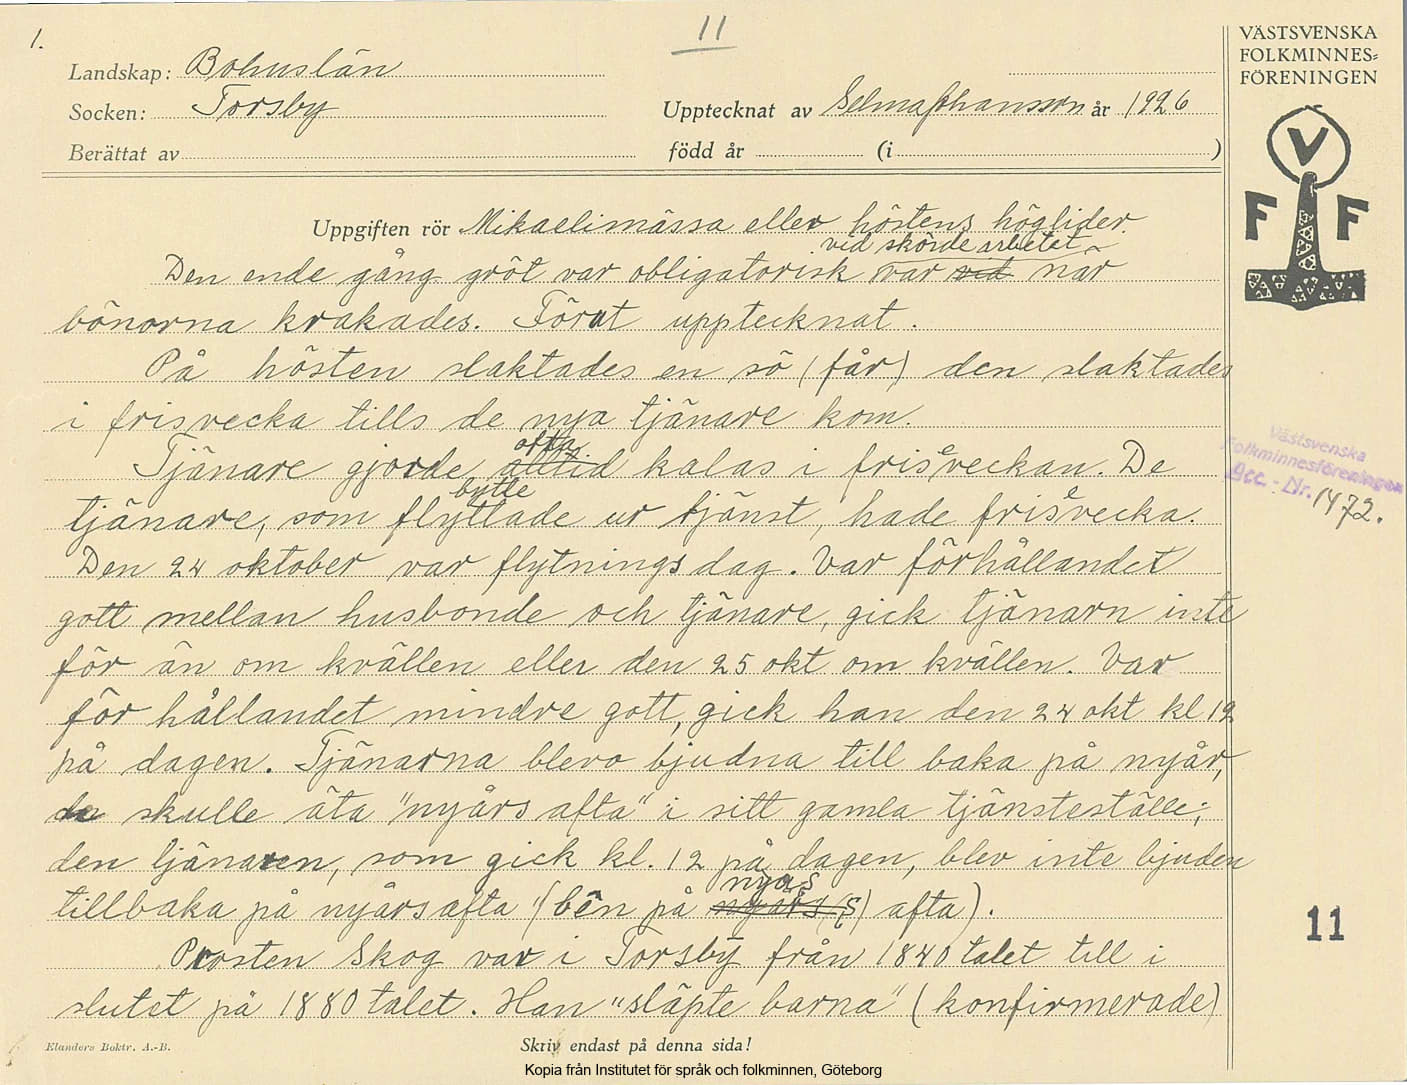 1.
11
VÄSTSVENSKA
FOLKMINNES=
FÖRENINGEN
Landskap: Bohuslän
Socken: Torsby
Upptecknat av Selma Johansson år 1926
Berättat av
född år
(i )
V
F F
Uppgiften rör Mikaelimässa eller höstens högtider.
vid skördearbetet
Den ende gång gröt var obligatorisk var vid när
bönorna krakades. Förut upptecknat.
På hösten slaktades en sö (får) den slaktades
i frisvecka tills de nya tjänare kom.
ofta
Tjänare gjorde alltid kalas i friseveckan. De
bytte
tjänare, som flyttade ur tjänst, hade frisevecka.
Den 24 oktober var flytningsdag. Var förhållandet
gott mellan husbonde och tjänare, gick tjänarn inte
för än om kvällen eller den 25 okt om kvällen. Var
för hållandet mindre gott, gick han den 24 okt kl 12
på dagen. Tjänarna blevo bjudna till baka på nyår,
de skulle äta "nyårs afta" i sitt gamla tjänsteställe;
den tjänaren, som gick kl. 12 på dagen, blev inte bjuden
nyas
tillbaka på nyårsafta (bên på nyårs(s) afta).
Prosten Skog var i Torsby från 1840 talet till i
slutet på 1880 talet. Han "släpte barna" (konfirmerade)
Västsvenska
Folkminnesföreningen
Acc. - Nr. 1472.
11
Elanders Boktr. A.-B.
Skriv endast på denna sida!
Kopia från Institutet för språk och folkminnen, Göteborg